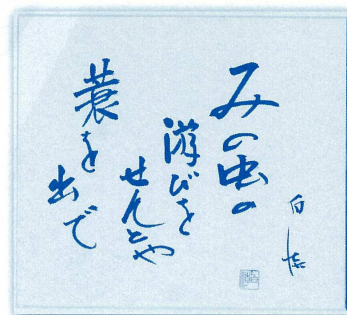 みの虫の
游びを
せんとや
蓑を出で